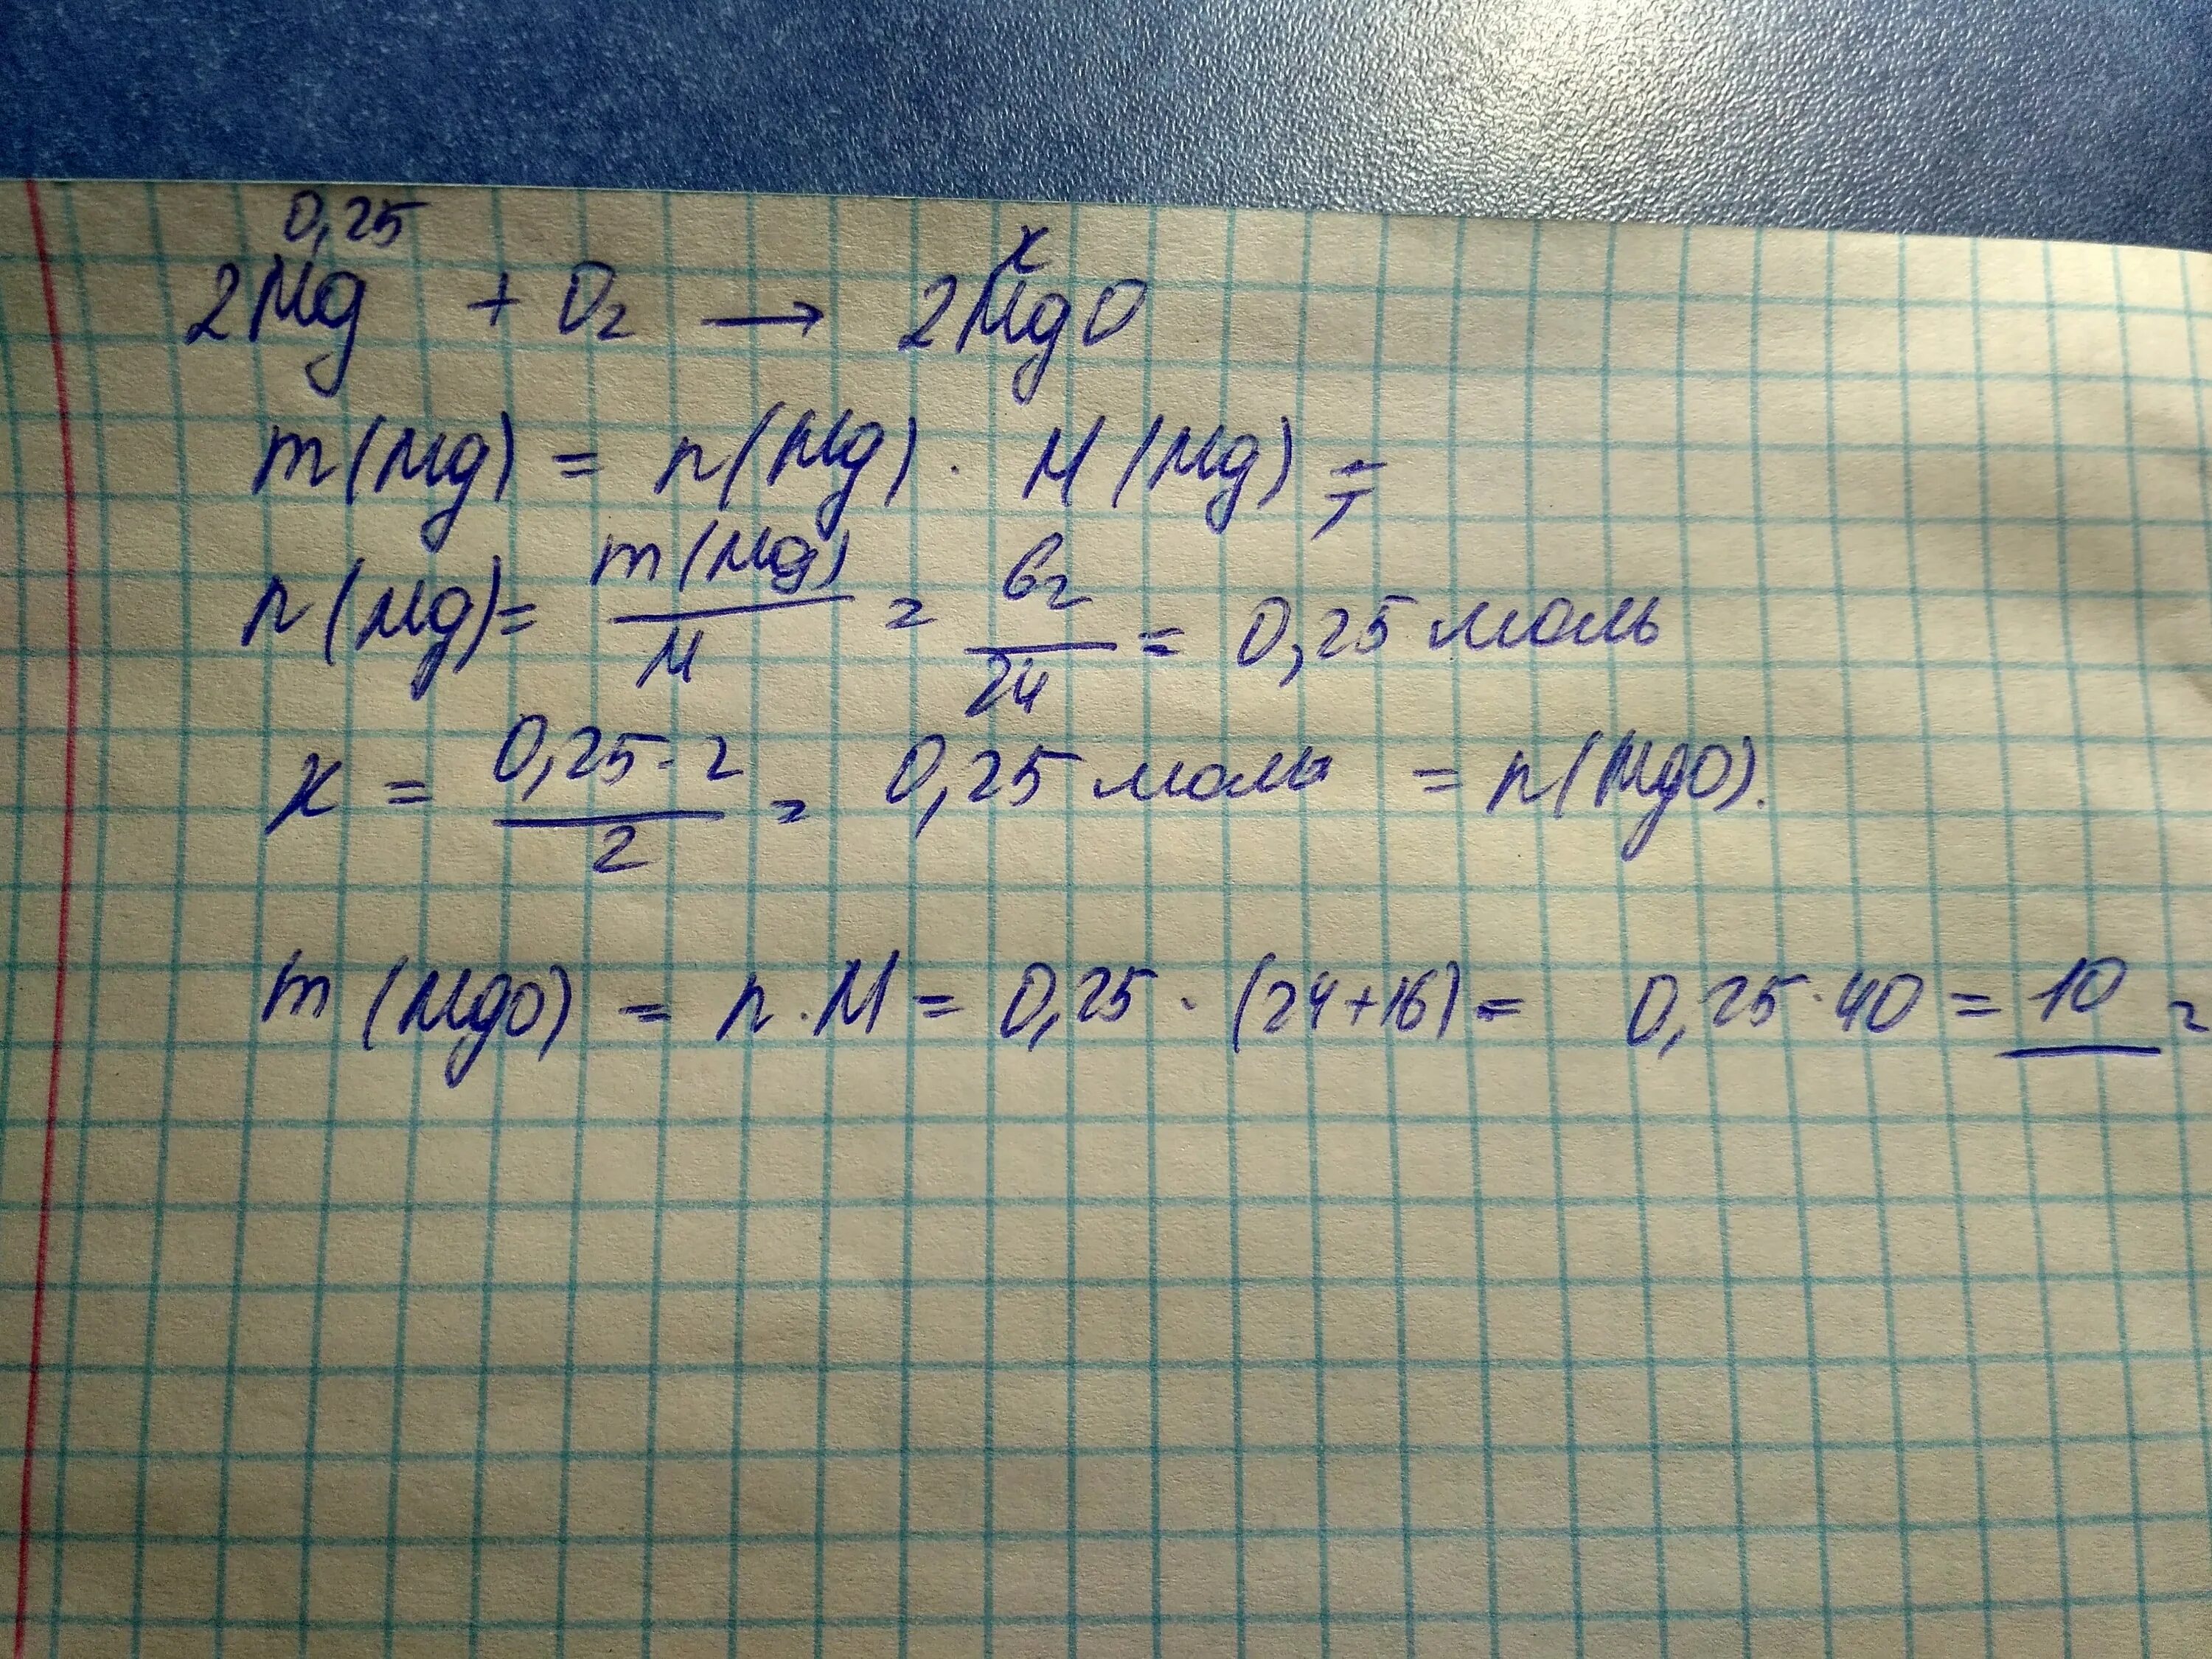 0,25 x
2Mg + O₂ → 2MgO
m(Mg) = n(Mg) · M(Mg) =
n(Mg) = m(Mg)/M = 6г/24 = 0,25 моль
x = 0,25·2/2 = 0,25 моль = n(MgO).
m(MgO) = n·M = 0,25 · (24+16) = 0,25·40 = 10 г